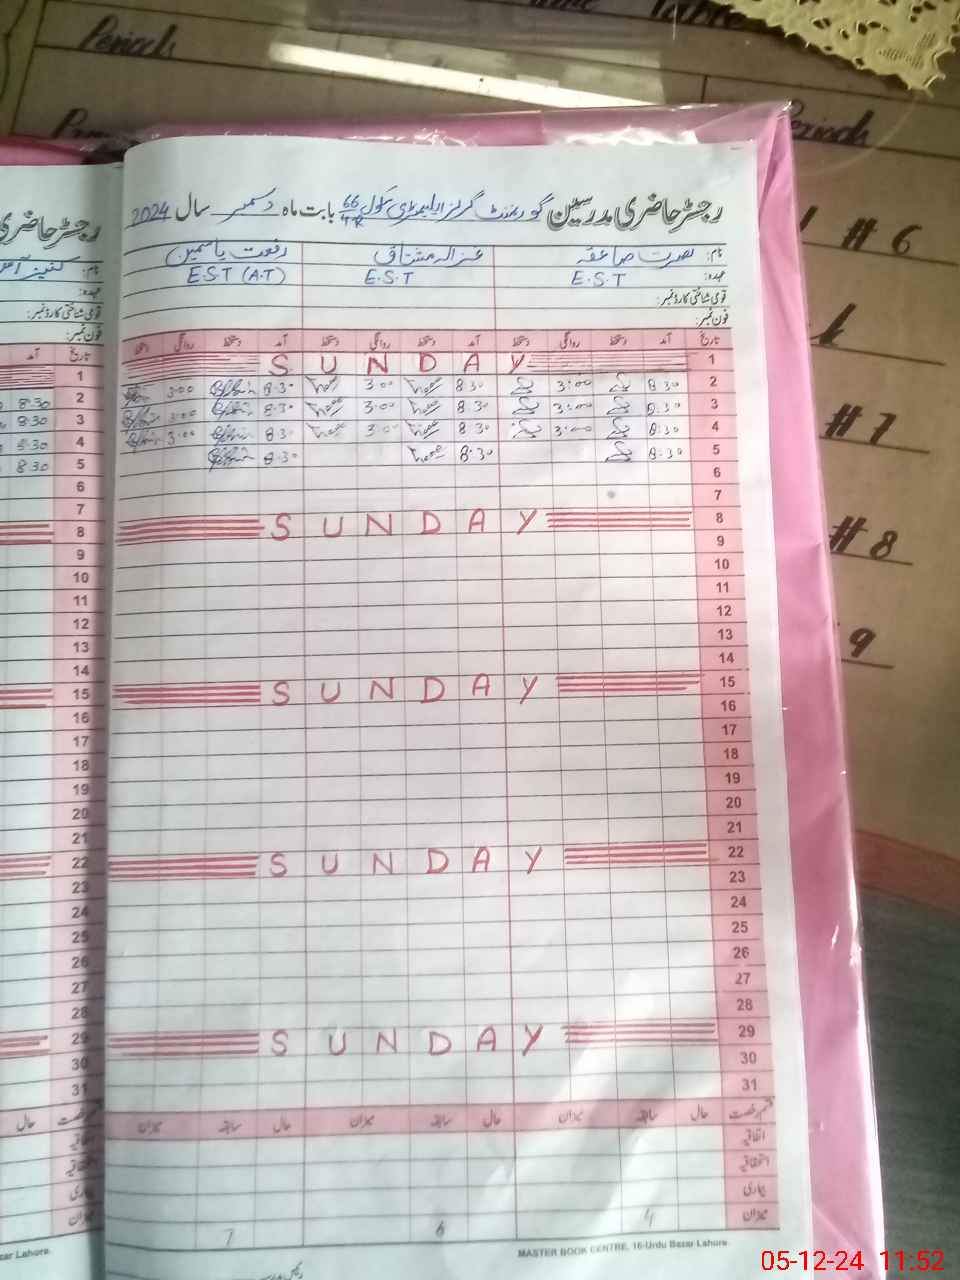 Period
Table
Period
# 6
# 7
# 8
9
رجسٹر حاضری مدرسین گورنمنٹ گرلز ایلیمنٹری سکول 66 بابت ماہ دسمبر سال 2024
نام: نصرت صاعقہ غزالہ مشتاق رفعت یاسمین
عہدہ: E.S.T E.S.T E.S.T (A.T)
قومی شناختی کارڈ نمبر:
فون نمبر:
تاریخ آمد دستخط روانگی دستخط آمد دستخط روانگی دستخط آمد دستخط روانگی دستخط
1 SUNDAY
2 8:30 3:00 8:30 3:00 8:30 3:00
3 8:30 3:00 8:30 3:00 8:30 3:00
4 8:30 3:00 8:30 3:00 8:30 3:00
5 8:30 8:30 8:30
6
7
8 SUNDAY
9
10
11
12
13
14
15 SUNDAY
16
17
18
19
20
21
22 SUNDAY
23
24
25
26
27
28
29 SUNDAY
30
31
قسم رخصت حال سابقہ میزان حال سابقہ میزان حال سابقہ میزان
اتفاقیہ
استحقاقیہ
بیماری
میزان 4 6 7
MASTER BOOK CENTRE, 16-Urdu Bazar Lahore.
رجسٹر حاضری
نام:
عہدہ:
قومی شناختی کارڈ نمبر:
فون نمبر:
تاریخ آمد
1
2 8:30
3 8:30
4 8:30
5 8:30
6
7
8
9
10
11
12
13
14
15
16
17
18
19
20
21
22
23
24
25
26
27
28
29
30
31
قسم رخصت حال
اتفاقیہ
استحقاقیہ
بیماری
میزان
zar Lahore.
05-12-24 11:52